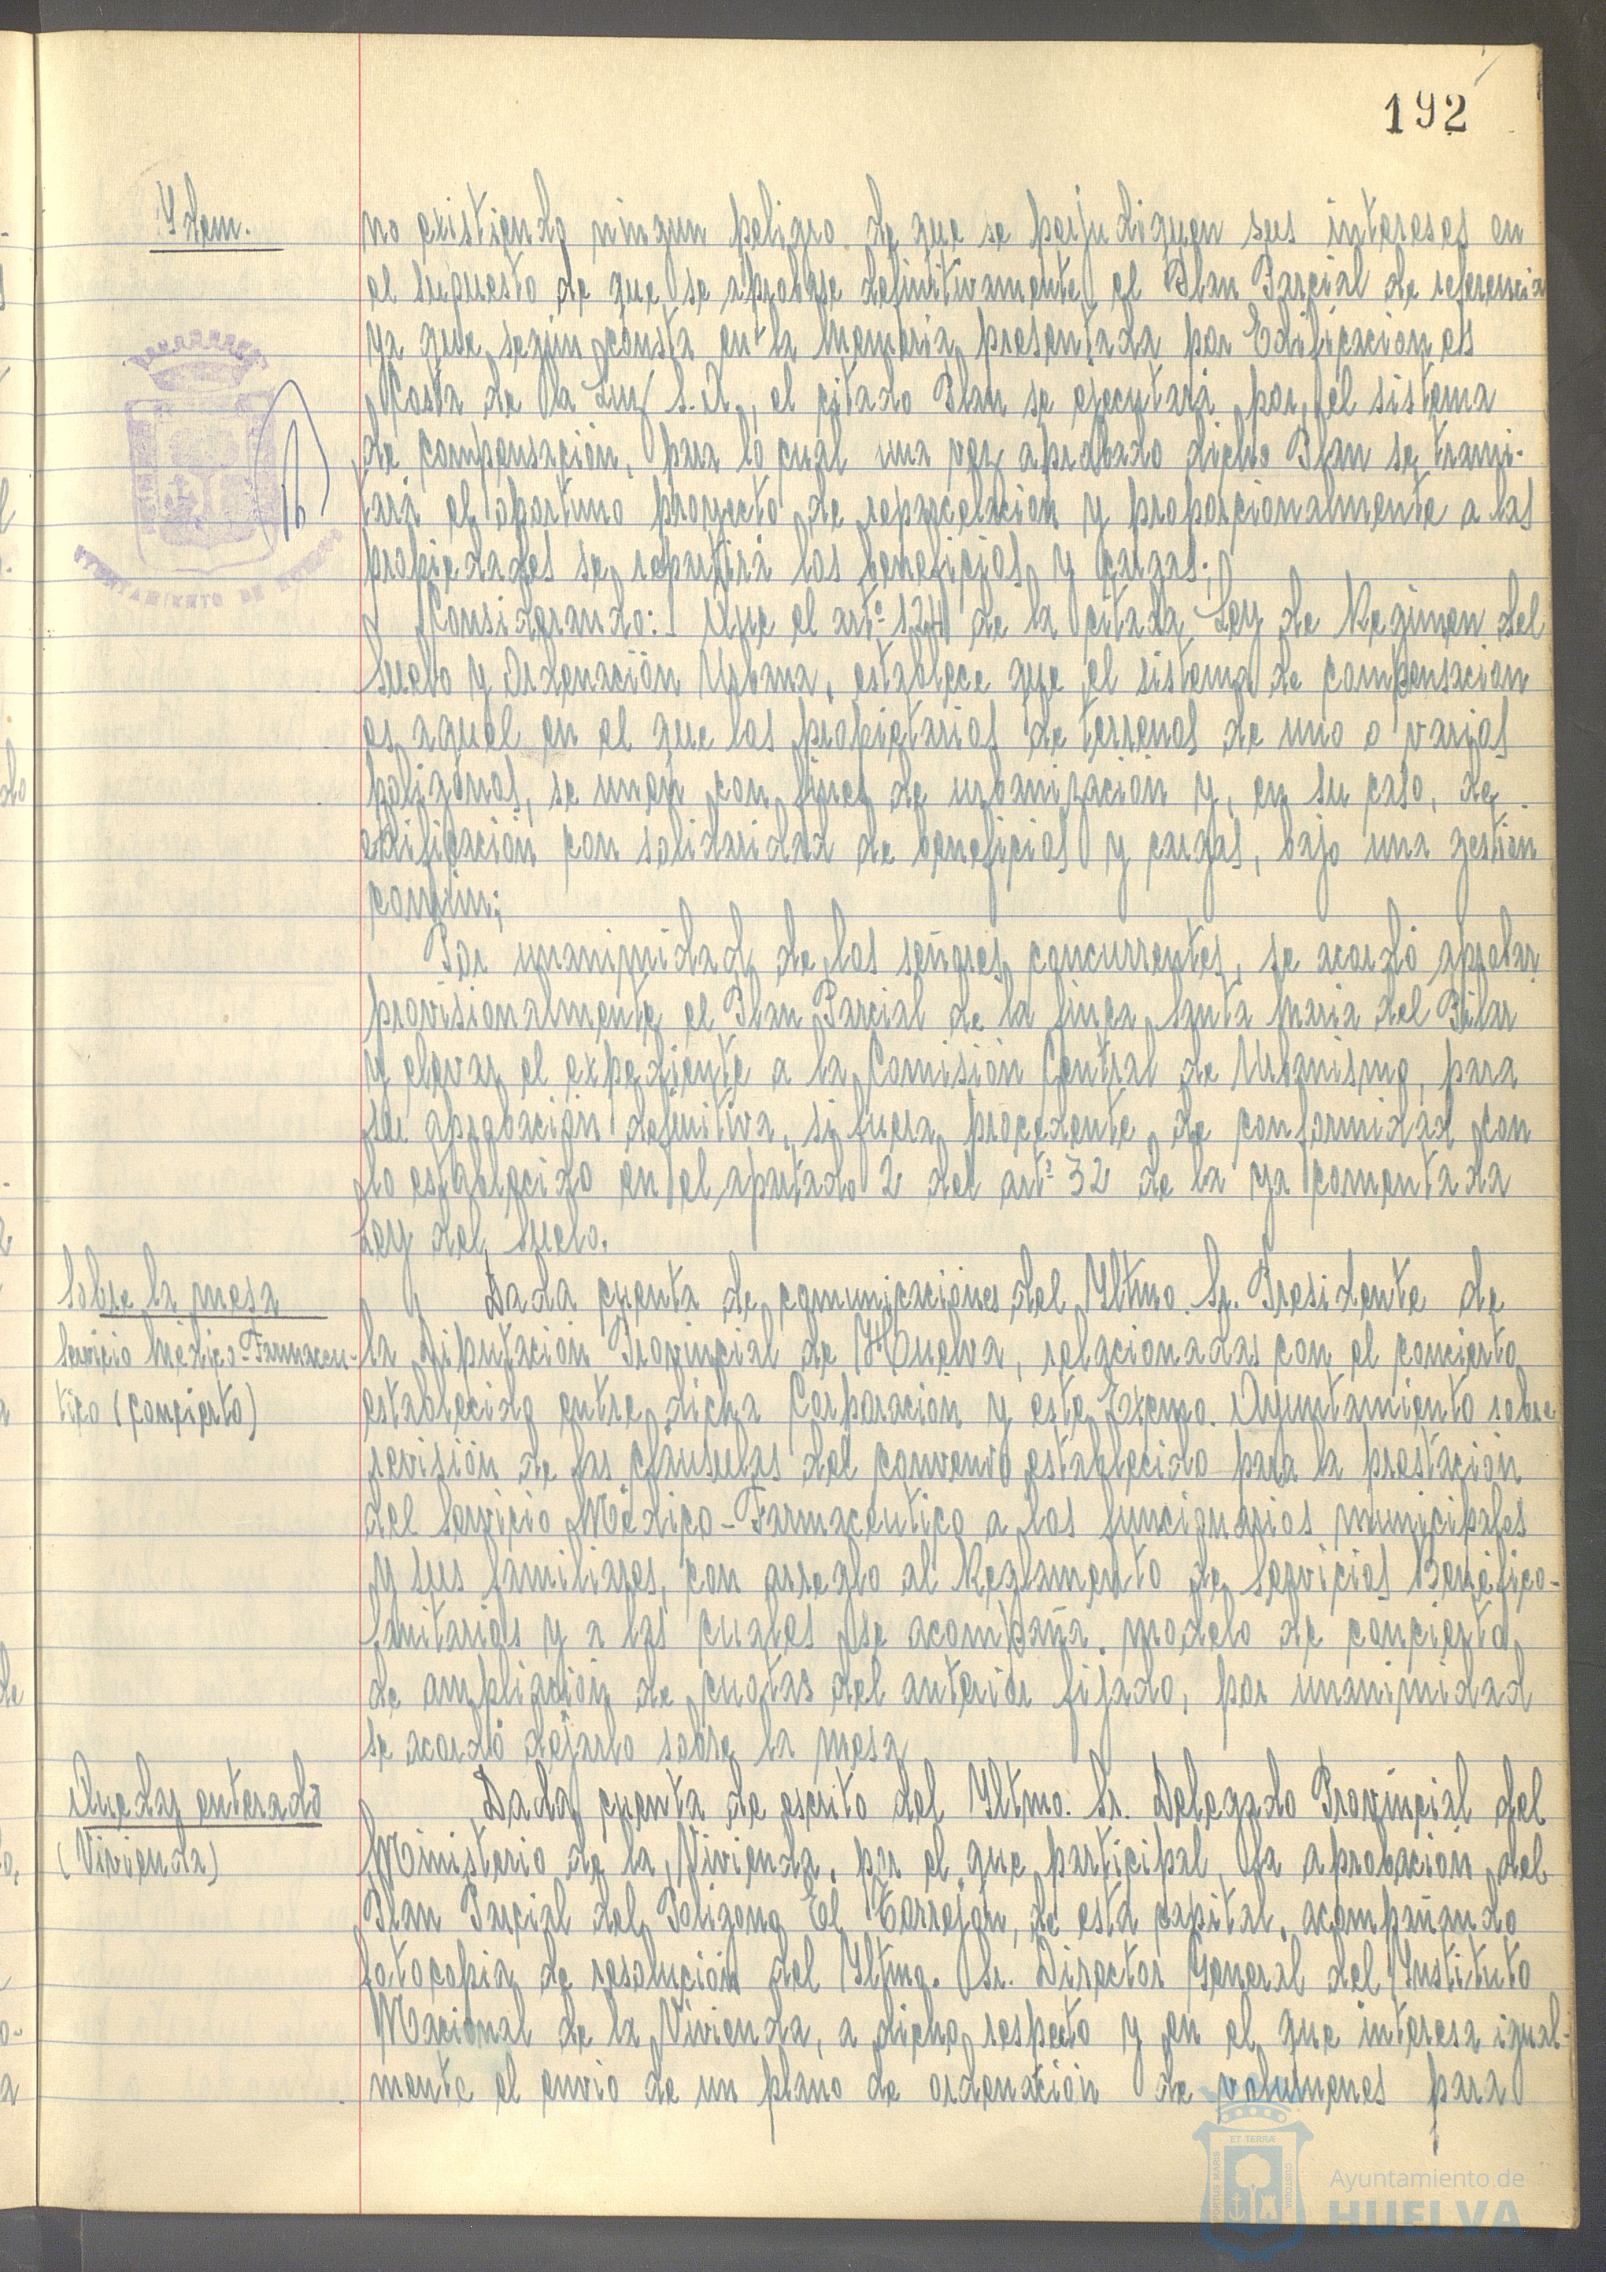 192
Ydem.
no existiendo ningun peligro de que se perjudiquen sus intereses en
el supuesto de que se aprobase definitivamente el Plan Parcial de referencia
ya que según consta en la Memoria presentada por Edificaciones
Costa de la Luz S.A., el citado Plan se ejecutará por el sistema
de compensación, para lo cual una vez aprobado dicho Plan se trami-
tará el oportuno proyecto de reparcelación y proporcionalmente a las
propiedades se repartirá los beneficios y cargas;
Considerando: Que el artº 124 de la citada Ley de Regimen del
Suelo y Ordenación Urbana, establece que el sistema de compensación
es aquel en el que los propietarios de terrenos de uno o varios
poligonos, se unen con fines de urbanización y, en su caso, de
edificación con solidaridad de beneficios y cargas, bajo una gestión
común;
Por unanimidad de los señores concurrentes, se acordó aprobar
provisionalmente el Plan Parcial de la finca Santa Maria del Pilar
y elevar el expediente a la Comisión Central de Urbanismo, para
su aprobación definitiva, si fuera procedente, de conformidad con
lo establecido en el apartado 2 del artº 32 de la ya comentada
Ley del Suelo.
Sobre la mesa
Servicio Médico-Farmaceu-
tico (Concierto)
Dada cuenta de comunicaciónes del Yltmo. Sr. Presidente de
la Diputación Provincial de Huelva, relacionadas con el concierto
establecido entre dicha Corporación y este Excmo. Ayuntamiento sobre
revisión de las cláusulas del convenio establecido para la prestación
del Servicio Médico-Farmaceutico a los funcionarios municipales
y sus familiares, con arreglo al Reglamento de Servicios Benéfico-
Sanitarios y a las cuales se acompaña modelo de concierto
de ampliación de cuotas del anterior fijado, por unanimidad
se acordó dejarlo sobre la mesa
Quedar enterado
(Vivienda)
Dada cuenta de escrito del Yltmo. Sr. Delegado Provincial del
Ministerio de la Vivienda, por el que participa la aprobación del
Plan Parcial del Poligono El Torrejón, de esta capital, acompañando
fotocopia de resolución del Yltmo. Sr. Director General del Ynstituto
Nacional de la Vivienda, a dicho respecto y en el que interesa igual-
mente el envio de un plano de ordenación de volumenes para
AYUNTAMIENTO DE HUELVA
PORTUS MARIS
ET TERRÆ
CUSTODIA
Ayuntamiento de
HUELVA